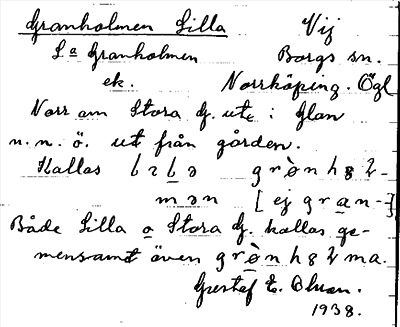 Granholmen Lilla Vij
La Granholmen Borgs sn.
ek. Norrköping. Ögl
Norr om Stora G. ute i Glan
n.n.ö. ut från gården.
Kallas grònh
mən [ej gran-]
Både Lilla o Stora G. kallas ge-
mensamt även grònh ma.
Gustaf E. Bluan.
1938.